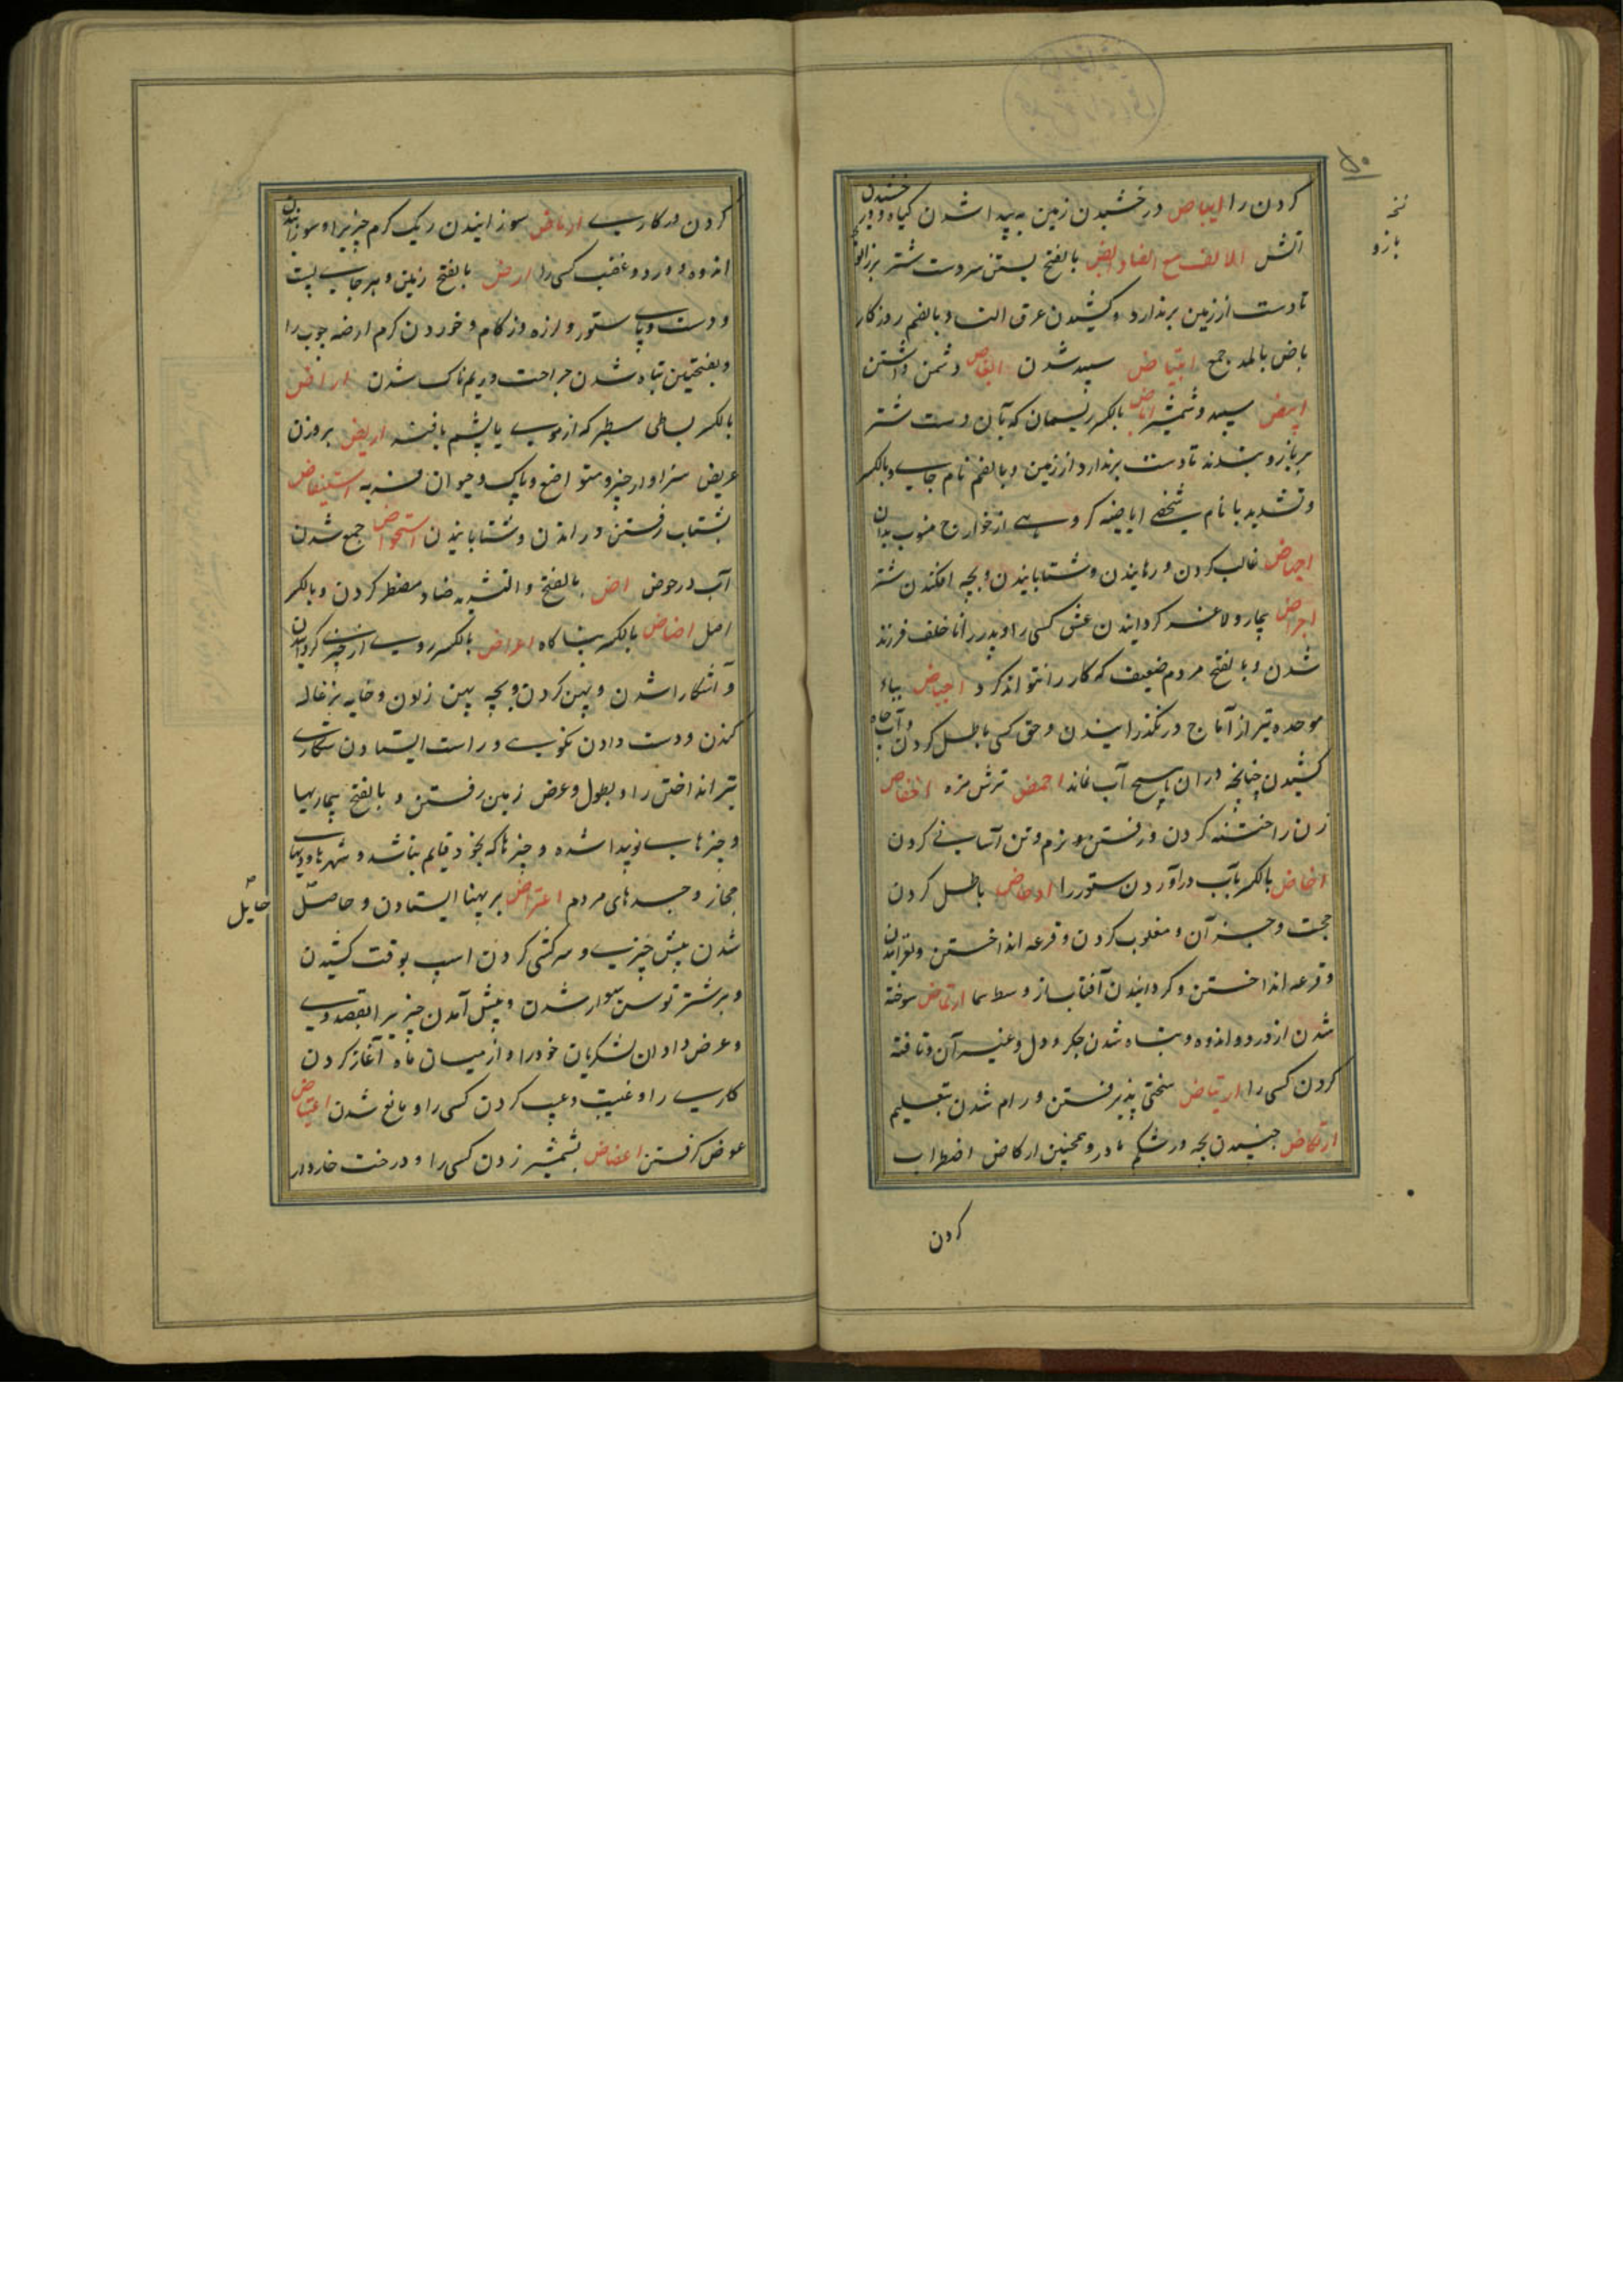 کردن را ایباص درخشیدن زمین به پیدا شدن گیاه و درخشیدن
آتش الالف مع الضاد ابض بالفتح بستن سر دست شتر بر
تا دست از زمین برندارد و کشیدن عرق النسا و بالضم روزگار
باض بالمد جمع ابتیاض سپید شدن ابغاض دشمن داشتن
ابیض سپید و شمشیر اباض بالکسر ریسمان که بآن دست شتر
بر بازو بندند تا دست برندارد از زمین و بالضم نام جایی و بالکسر
و تشدید با نام شخصی اباضیه گروهی از خوارج منسوب بدان
اجهاض غالب کردن و رهانیدن و شتابانیدن و بچه افکندن شتر
احراض بیمار و لاغر گردانیدن عشق کسی را و پدر را ناخلف فرزند
شدن و بالفتح مردم ضعیف که کار را نتواند کرد احباض بباء
موحده تیر از آماج درنگذرانیدن و حق کسی باطل کردن و آب چاه
کشیدن چنانچه در آن هیچ آب نماند احمض ترش مزه اخفاض
زن را ختنه کردن و رفتن و نرم و تن آسانی کردن
اخاض بالکسر بآب درآوردن ستور را ادحاض باطل کردن
حجت و جز آن و مغلوب کردن و قرعه انداختن و لغزانیدن
و قرعه انداختن و گردانیدن آفتاب از وسط سما ارتماض سوخته
شدن از درد و اندوه و تباه شدن جگر و دل و غیر آن و تافته
کردن کسی را ارتیاض سختی پذیرفتن و رام شدن بتعلیم
ارتکاض جنبیدن بچه در شکم مادر و همچنین ارکاض اضطراب
کردن
بازو
کردن در کاری ارماض سوزانیدن ریگ گرم چیزیرا و سوزانیدن
اندوه و درد و غضب کسی را ارض بالفتح زمین و هر جای پست
و دست و پای ستور و لرزه و زکام و خوردن کرم ارضه چوب را
و بفتحتین تباه شدن جراحت و ریمناک شدن اراض
بالکسر بساطی سطبر که از موی یا پشم بافند اریض بروزن
عریض سزاوار چیز و متواضع و پاک و حیوان فربه استیفاض
بشتاب رفتن و راندن و شتابانیدن استحواض جمع شدن
آب در حوض اض بالفتح و التشدید ضاد مضطر کردن و بالکسر
اصل اضاض بالکسر پناه گاه اعراض بالکسر روی از چیزی گردانیدن
و آشکارا شدن و پهن کردن و بچه پهن زادن و خایه بزغاله
کندن و دست دادن نکویی و راست ایستادن شکاری
تیر انداختن را و بطول و عرض زمین رفتن و بالفتح بیماریها
و چیزهای نوپیدا شده و چیزها که بخود قایم نباشد و شهرها و دیهای
حجاز و جسدهای مردم اعتراض بر پهنا ایستادن و حاصل
حایل
شدن پیش چیزی و سرکشی کردن اسپ بوقت کشیدن
و بر شتر توسن سوار شدن و پیش آمدن چیزیرا بقصد وی
و عرض دادن لشکریان خود را و از میان ماه آغاز کردن
کاری را و غیبت و عیب کردن کسی را و مانع شدن اعتیاض
عوض گرفتن اعضاض بشمشیر زدن کسی را و درخت خاردار